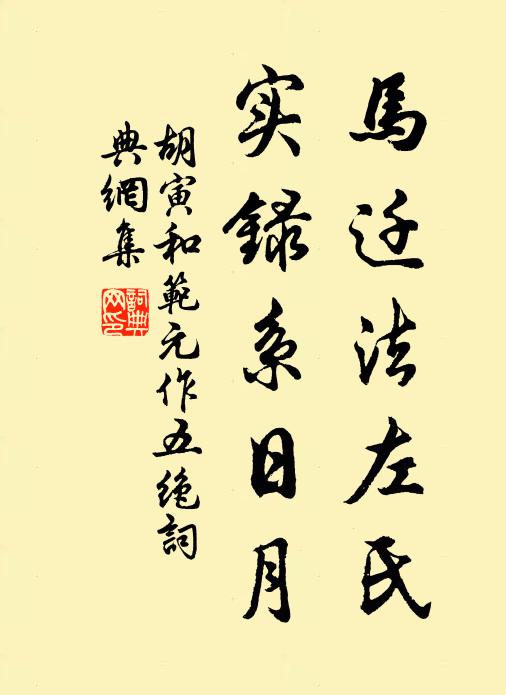 馬迁法左氏
实録系日月
胡寅和範元作五绝詞
典網集
詞典网印